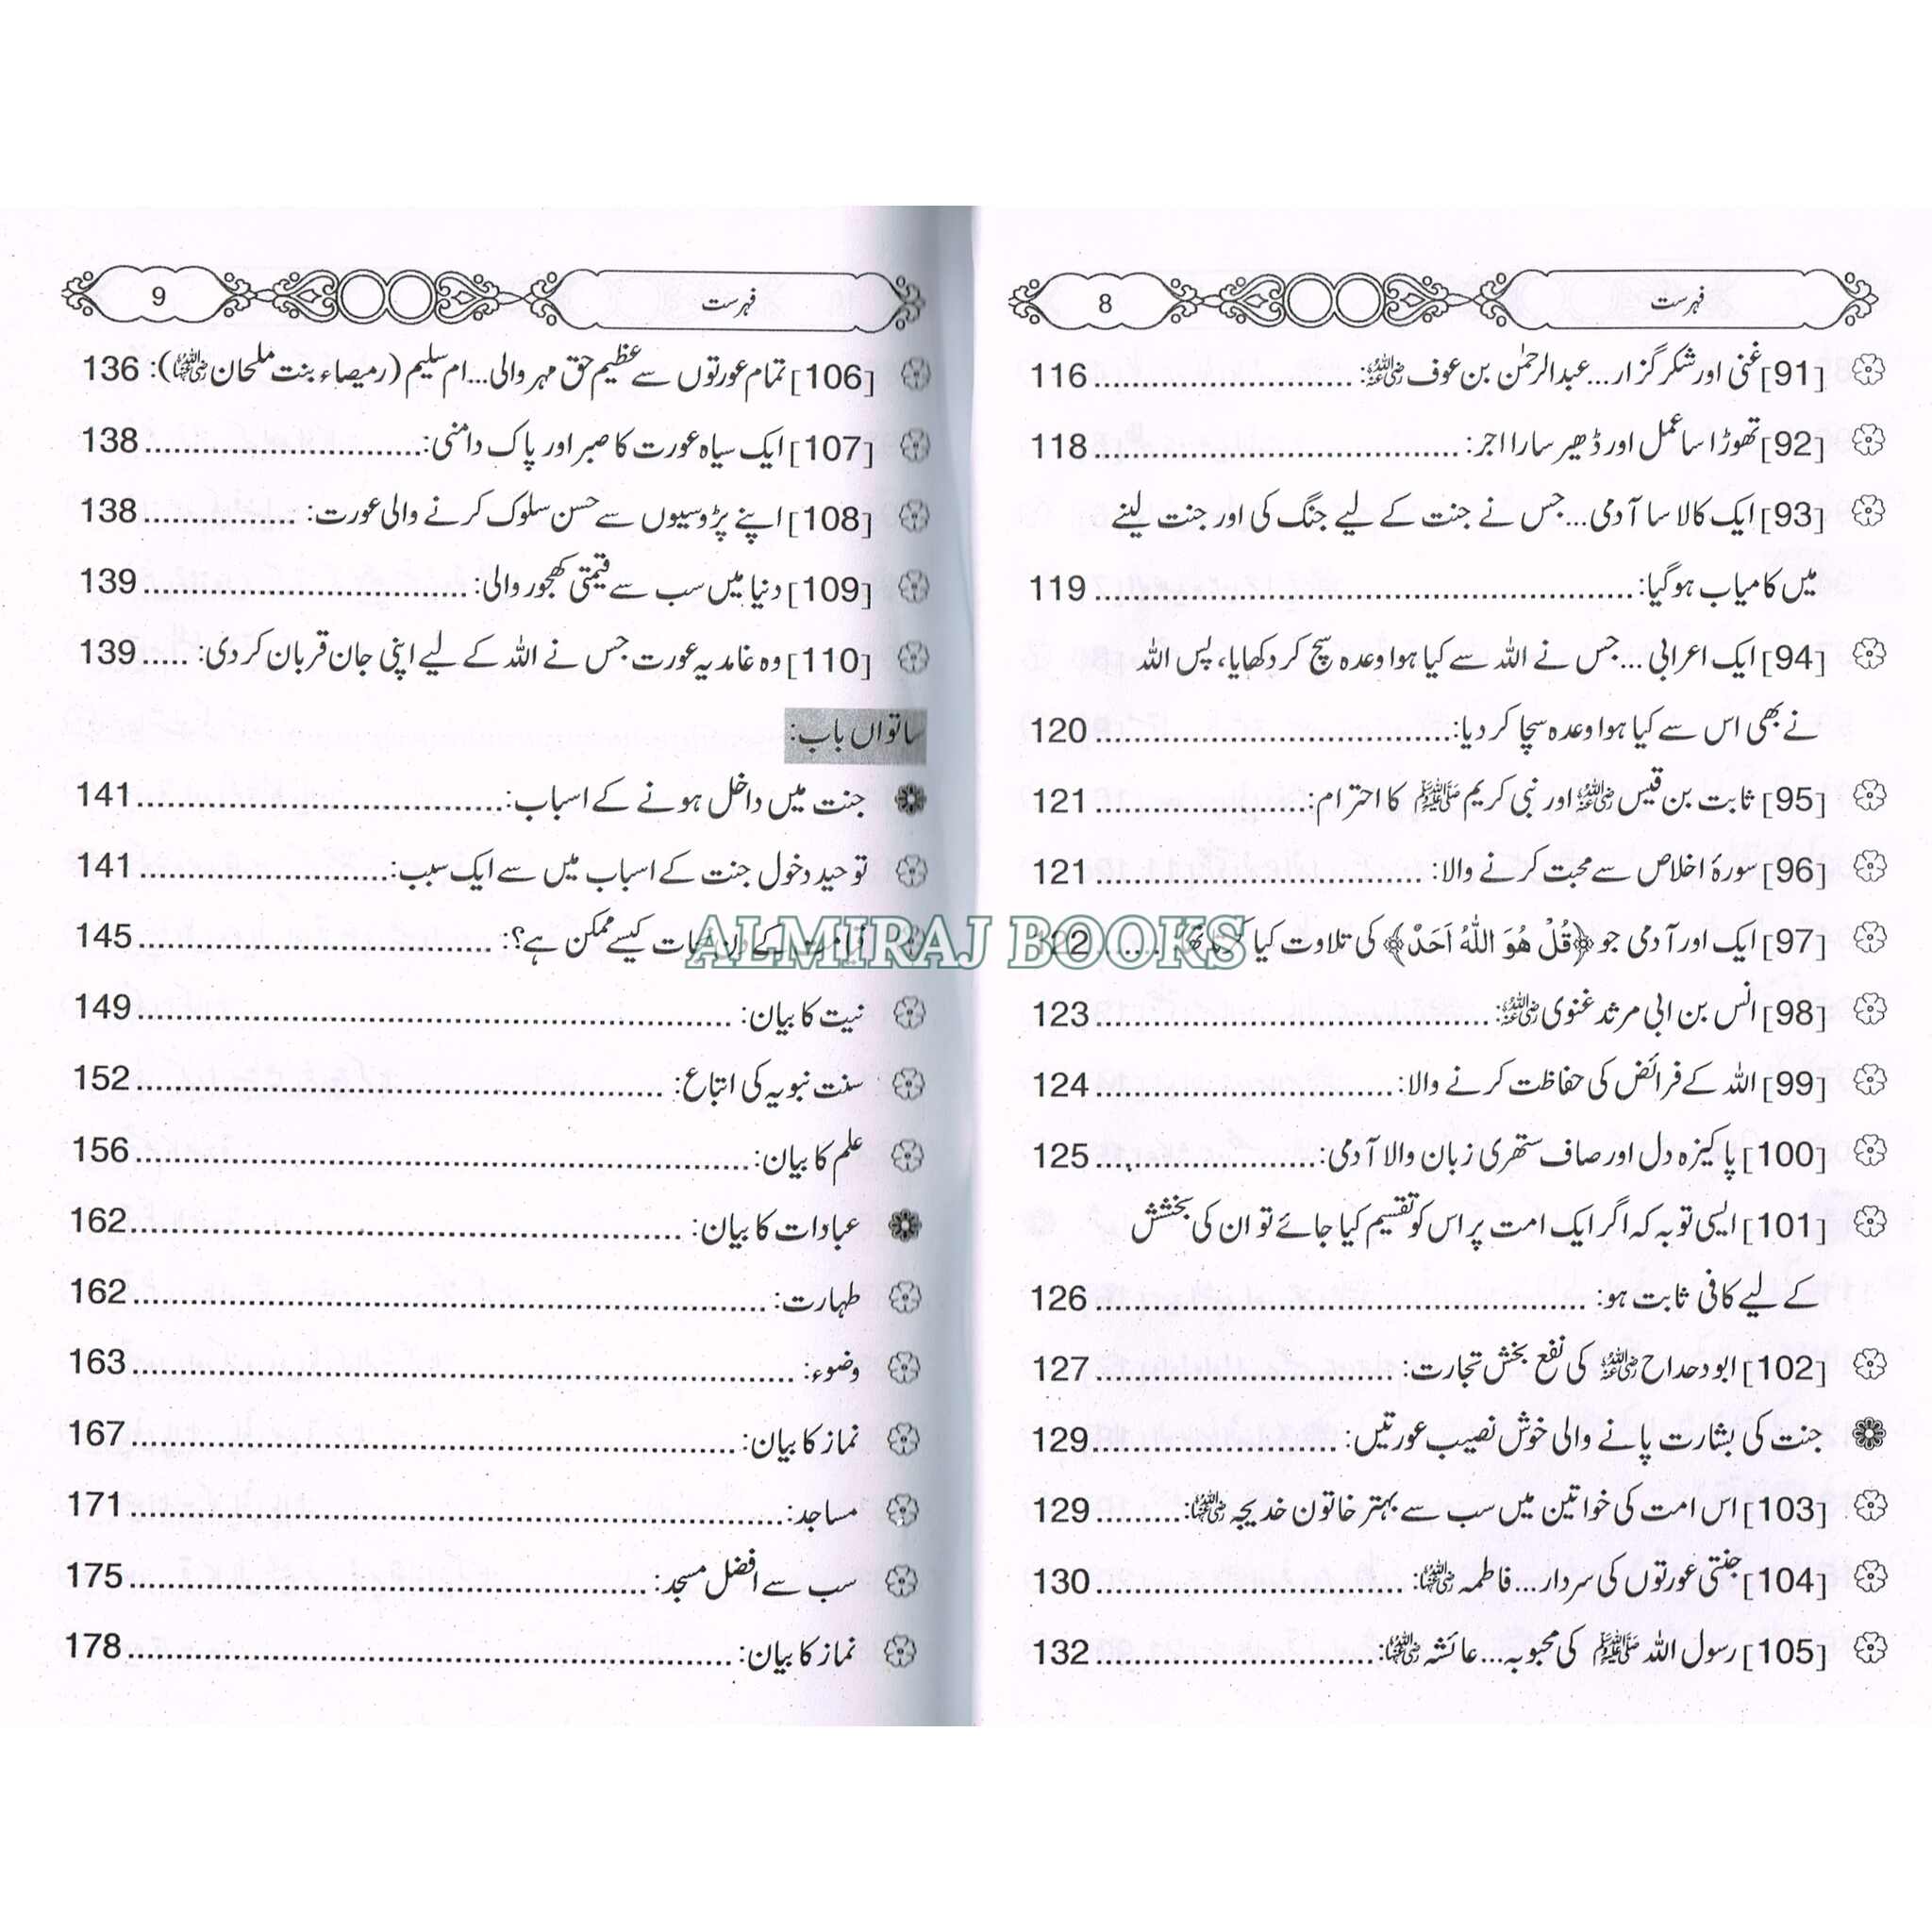 فہرست 8
[91] غنی اور شکر گزار... عبدالرحمٰن بن عوف رضی اللہ عنہ: 116
[92] تھوڑا سا عمل اور ڈھیر سارا اجر: 118
[93] ایک کالا سا آدمی... جس نے جنت کے لیے جنگ کی اور جنت لینے
میں کامیاب ہو گیا: 119
[94] ایک اعرابی... جس نے اللہ سے کیا ہوا وعدہ سچ کر دکھایا، پس اللہ
نے بھی اس سے کیا ہوا وعدہ سچا کر دیا: 120
[95] ثابت بن قیس رضی اللہ عنہ اور نبی کریم ﷺ کا احترام: 121
[96] سورۂ اخلاص سے محبت کرنے والا: 121
[97] ایک اور آدمی جو ﴿قُلْ هُوَ اللّٰهُ اَحَدٌ﴾ کی تلاوت کیا 122
[98] انس بن ابی مرثد غنوی رضی اللہ عنہ: 123
[99] اللہ کے فرائض کی حفاظت کرنے والا: 124
[100] پاکیزہ دل اور صاف ستھری زبان والا آدمی: 125
[101] ایسی توبہ کہ اگر ایک امت پر اس کو تقسیم کیا جائے تو ان کی بخشش
کے لیے کافی ثابت ہو: 126
[102] ابودحداح رضی اللہ عنہ کی نفع بخش تجارت: 127
جنت کی بشارت پانے والی خوش نصیب عورتیں: 129
[103] اس امت کی خواتین میں سب سے بہتر خاتون خدیجہ رضی اللہ عنہا: 129
[104] جنتی عورتوں کی سردار... فاطمہ رضی اللہ عنہا: 130
[105] رسول اللہ ﷺ کی محبوبہ... عائشہ رضی اللہ عنہا: 132
فہرست 9
[106] تمام عورتوں سے عظیم حق مہر والی... ام سلیم (رمیصاء بنت ملحان رضی اللہ عنہا): 136
[107] ایک سیاہ عورت کا صبر اور پاک دامنی: 138
[108] اپنے پڑوسیوں سے حسن سلوک کرنے والی عورت: 138
[109] دنیا میں سب سے قیمتی کھجور والی: 139
[110] وہ غامدیہ عورت جس نے اللہ کے لیے اپنی جان قربان کر دی: 139
ساتواں باب:
جنت میں داخل ہونے کے اسباب: 141
توحید دخول جنت کے اسباب میں سے ایک سبب: 141
قیامت کے دن نجات کیسے ممکن ہے؟: 145
نیت کا بیان: 149
سنت نبویہ کی اتباع: 152
علم کا بیان: 156
عبادات کا بیان: 162
طہارت: 162
وضوء: 163
نماز کا بیان: 167
مساجد: 171
سب سے افضل مسجد: 175
نماز کا بیان: 178
ALMIRAJ BOOKS